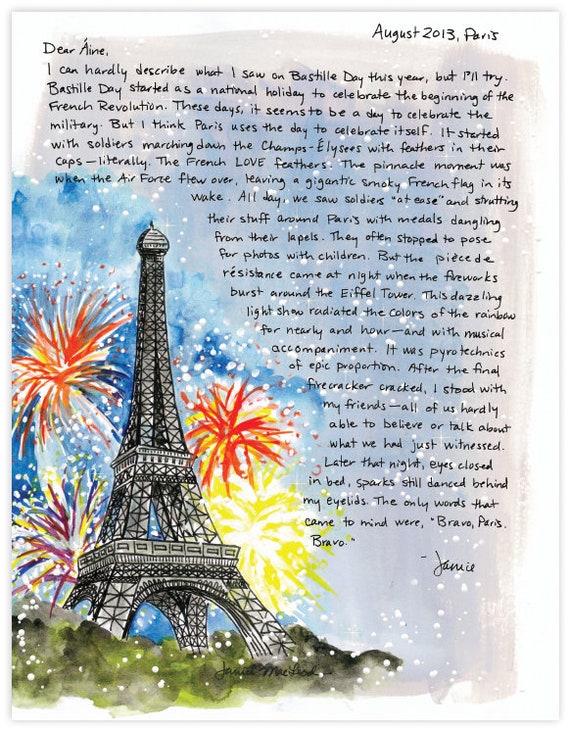 August 2013, Paris
Dear Áine,
I can hardly describe what I saw on Bastille Day this year, but I'll try.
Bastille Day started as a national holiday to celebrate the beginning of the
French Revolution. These days, it seems to be a day to celebrate the
military. But I think Paris uses the day to celebrate itself. It started
with soldiers marching down the Champs-Élysees with feathers in their
caps—literally. The French LOVE feathers. The pinnacle moment was
when the Air Force flew over, leaving a gigantic smoky French flag in its
wake. All day, we saw soldiers "at ease" and strutting
their stuff around Paris with medals dangling
from their lapels. They often stopped to pose
for photos with children. But the pièce de
résistance came at night when the fireworks
burst around the Eiffel Tower. This dazzling
light show radiated the colors of the rainbow
for nearly and hour—and with musical
accompaniment. It was pyrotechnics
of epic proportion. After the final
firecracker cracked, I stood with
my friends—all of us hardly
able to believe or talk about
what we had just witnessed.
Later that night, eyes closed
in bed, sparks still danced behind
my eyelids. The only words that
came to mind were, "Bravo, Paris.
Bravo."
- Janice
Janice MacLeod